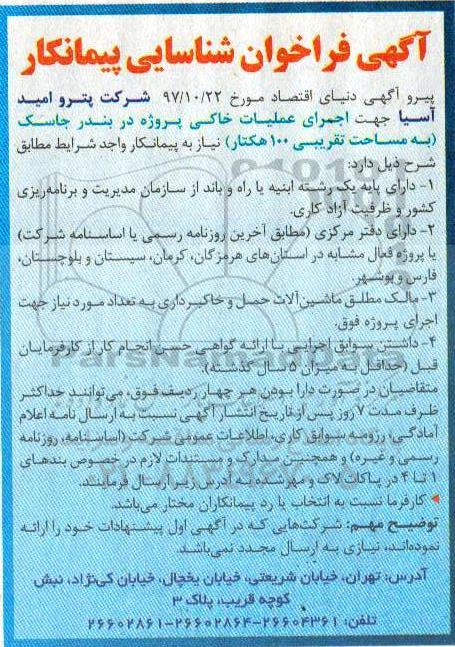 آگهی فراخوان شناسایی پیمانکار
پیرو آگهی دنیای اقتصاد مورخ ۹۷/۱۰/۲۲ شرکت پترو امید
آسیا جهت اجرای عملیات خاکی پروژه در بندر جاسک
(به مساحت تقریبی ۱۰۰ هکتار) نیاز به پیمانکار واجد شرایط مطابق
شرح ذیل دارد:
۱- دارای پایه یک رشته ابنیه یا راه و باند از سازمان مدیریت و برنامه‌ریزی
کشور و ظرفیت آزاد کاری.
۲- دارای دفتر مرکزی (مطابق آخرین روزنامه رسمی یا اساسنامه شرکت)
یا پروژه فعال مشابه در استان‌های هرمزگان، کرمان، سیستان و بلوچستان،
فارس و بوشهر
۳- مالک مطلق ماشین‌آلات حمل و خاکبرداری به تعداد مورد نیاز جهت
اجرای پروژه فوق.
۴- داشتن سوابق اجرایی با ارائه گواهی حسن انجام کار از کارفرمایان
قبل (حداقل به میزان ۵ سال گذشته).
متقاضیان در صورت دارا بودن هر چهار ردیف فوق، می‌توانند حداکثر
ظرف مدت ۷ روز پس از تاریخ انتشار آگهی نسبت به ارسال نامه اعلام
آمادگی، رزومه سوابق کاری، اطلاعات عمومی شرکت (اساسنامه، روزنامه
رسمی و غیره) و همچنین مدارک و مستندات لازم در خصوص بندهای
۱ تا ۴ در پاکات لاک و مهر شده به آدرس زیر ارسال فرمایند.
کارفرما نسبت به انتخاب یا رد پیمانکاران مختار می‌باشد.
توضیح مهم: شرکت‌هایی که در آگهی اول پیشنهادات خود را ارائه
نموده‌اند، نیازی به ارسال مجدد نمی‌باشد.
آدرس: تهران، خیابان شریعتی، خیابان یخچال، خیابان کی‌نژاد، نبش
کوچه قریب، پلاک ۳
تلفن: ۲۶۶۰۴۳۶۱-۲۶۶۰۲۸۶۴-۲۶۶۰۲۸۶۱
ParsNamadData